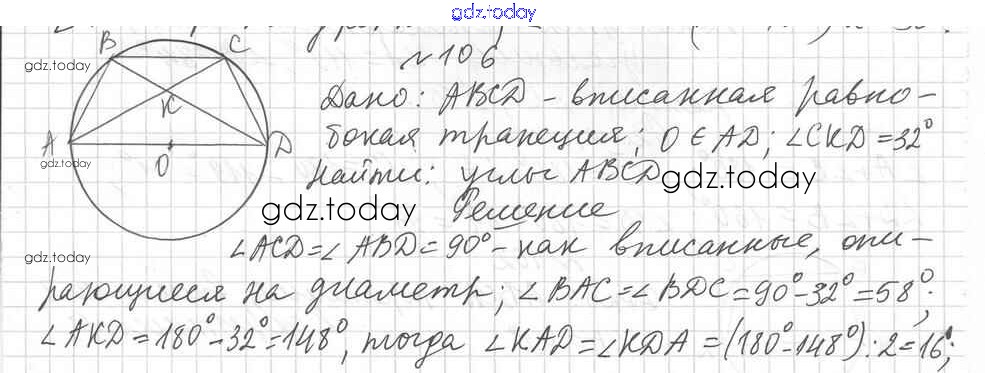 gdz.today
№106
B C
gdz.today
Дано: ABCD – вписанная равно–
K
A D
бокая трапеция; O ∈ AD; ∠CKD = 32°
gdz.today
O
Найти: углы ABCD
gdz.today
gdz.today
Решение
∠ACD = ∠ABD = 90° – как вписанные, опи–
gdz.today
рающиеся на диаметр; ∠BAC = ∠BDC = 90° – 32° = 58°;
∠AKD = 180° – 32° = 148°, тогда ∠KAD = ∠KDA = (180° – 148°) : 2 = 16°;